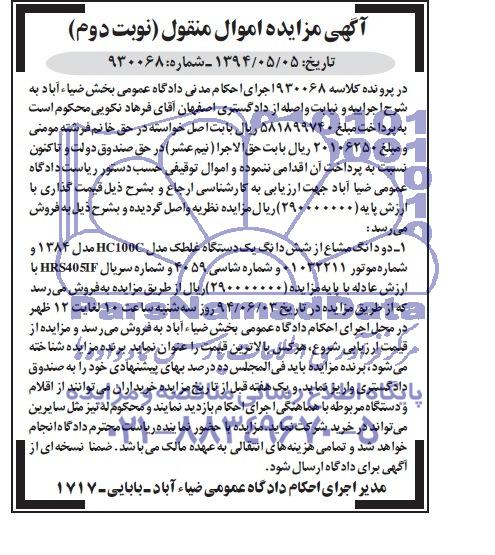 آگهی مزایده اموال منقول (نوبت دوم)
تاریخ: ۱۳۹۴/۰۵/۰۵ ـ شماره: ۹۳۰۰۶۸
در پرونده کلاسه ۹۳۰۰۶۸ اجرای احکام مدنی دادگاه عمومی بخش ضیاء آباد به
شرح اجراییه و نیابت واصله از دادگستری اصفهان آقای فرهاد نکویی محکوم است
به پرداخت مبلغ ۵۸۱۸۹۹۷۴۰ ریال بابت اصل خواسته در حق خانم فرشته مومنی
و مبلغ ۲۰۱۰۶۲۵۰ ریال بابت حق الاجرا (نیم عشر) در حق صندوق دولت و تاکنون
نسبت به پرداخت آن اقدامی ننموده و اموال توقیفی حسب دستور ریاست دادگاه
عمومی ضیا آباد جهت ارزیابی به کارشناسی ارجاع و بشرح ذیل قیمت گذاری با
ارزش پایه (۲۹۰۰۰۰۰۰۰) ریال مزایده نظریه واصل گردیده و بشرح ذیل به فروش
می‌رسد:
۱ـ دو دانگ مشاع از شش دانگ یک دستگاه غلطک مدل HC100C مدل ۱۳۸۴ و
شماره موتور ۰۱۰۳۲۲۱۱ و شماره شاسی ۴۰۵۹ و شماره سریال HRS405IF با
ارزش عادله با پایه مزایده (۲۹۰۰۰۰۰۰۰) ریال از طریق مزایده به فروش می رسد
که از طریق مزایده در تاریخ ۹۴/۰۶/۰۳ روز سه شنبه ساعت ۱۰ لغایت ۱۲ ظهر
در محل اجرای احکام دادگاه عمومی بخش ضیاء آباد به فروش می رسد و مزایده از
قیمت ارزیابی شروع، هرکس بالاترین قیمت را عنوان نماید برنده مزایده شناخته
می‌شود، برنده مزایده باید فی المجلس ده درصد بهای پیشنهادی خود را به صندوق
دادگستری واریز نماید. و یک هفته قبل از تاریخ مزایده خریداران می توانند از اقلام
و دستگاه مربوطه با هماهنگی اجرای احکام بازدید نمایند و محکوم له نیز مثل سایرین
می‌تواند در خرید شرکت نماید. مزایده با حضور نماینده ریاست محترم دادگاه انجام
خواهد شد و تمامی هزینه های انتقالی به عهده مالک می باشد. ضمنا نسخه ای از
آگهی برای دادگاه ارسال شود.
مدیر اجرای احکام دادگاه عمومی ضیاء آباد ـ بابایی ـ ۱۷۱۷
ParsNamadData
پایگاه اطلاع رسانی مناقصه و مزایده
۰۲۱-۸۸۳۴۹۶۷۰-۵